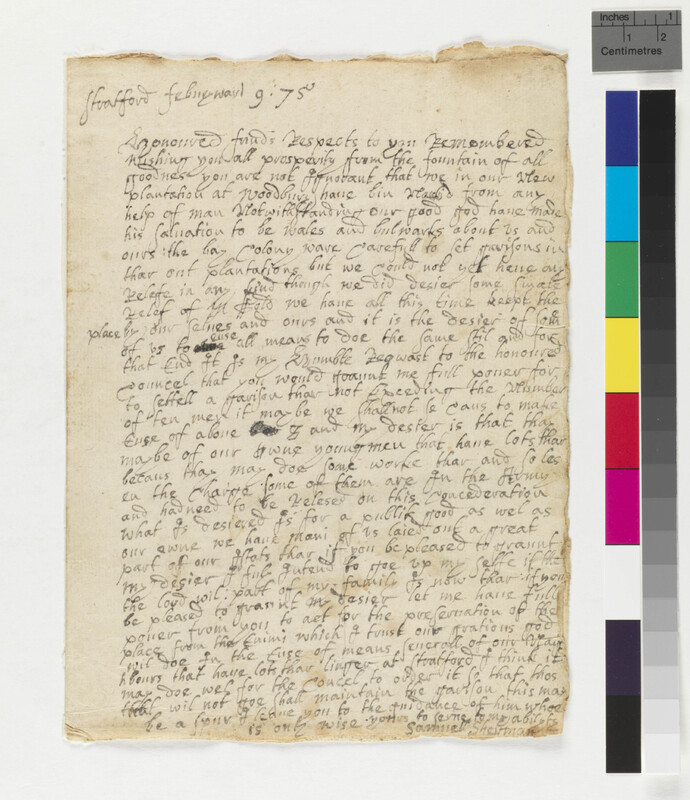 Stratford febuywarl 9: 75
Honoured frinds Respects to you Remembered
wishing you all prosperity from the fountain of all
goodnes you are not Ignorant that we in our New
plantation at Woodbury have bin from any
help of man Notwithstanding our good god have made
his salvation to be wales and bulwarks about us and
ours the bay Colony ware Carefull to set garisons in
thar out plantations but we Could not yet have any
Releefe in any kind though we did desier some
Relef of we have all this time keept the
place by our selves and ours and it is the desier of som
of us to euse all means to doe the same still and for
that End it is my Humble Request to the honoured
Councel that you would graunt me full power for
to settell a garison thar not Exceding the Number
of ten men it may be we shall not se Caus to make
Euse of above and my desier is that tha
maybe of our owne young men that have lots thar
becaus thay may doe some worke thar and so les
en the Charge some of them are in the Army
and had need to be Relesed on this Concederation
what is desiered is for a publik good as wel as
our owne we have mani of us laied out a great
part of our Estats thar if you be pleased to graunt
my desier I ful intend to goe up my selfe if the
the lord wil: part of my family is now thar if you
be pleased to graunt my desier let me have full
power from you to act for the preservation of the
place from the Enimi which I trust our gratious god
wil doe in the Euse of means severall of our Naigh
bours that have lots thar linger at Stratford I think it
may doe wel for the Councel to order it so that thos
that wil not goe shall maintain the garison this may
be a spur I leave you to the guidance of him whoe
is only wise yours to serve to my abilyty
Samuel Sherman
Inches 1
1 2
Centimetres